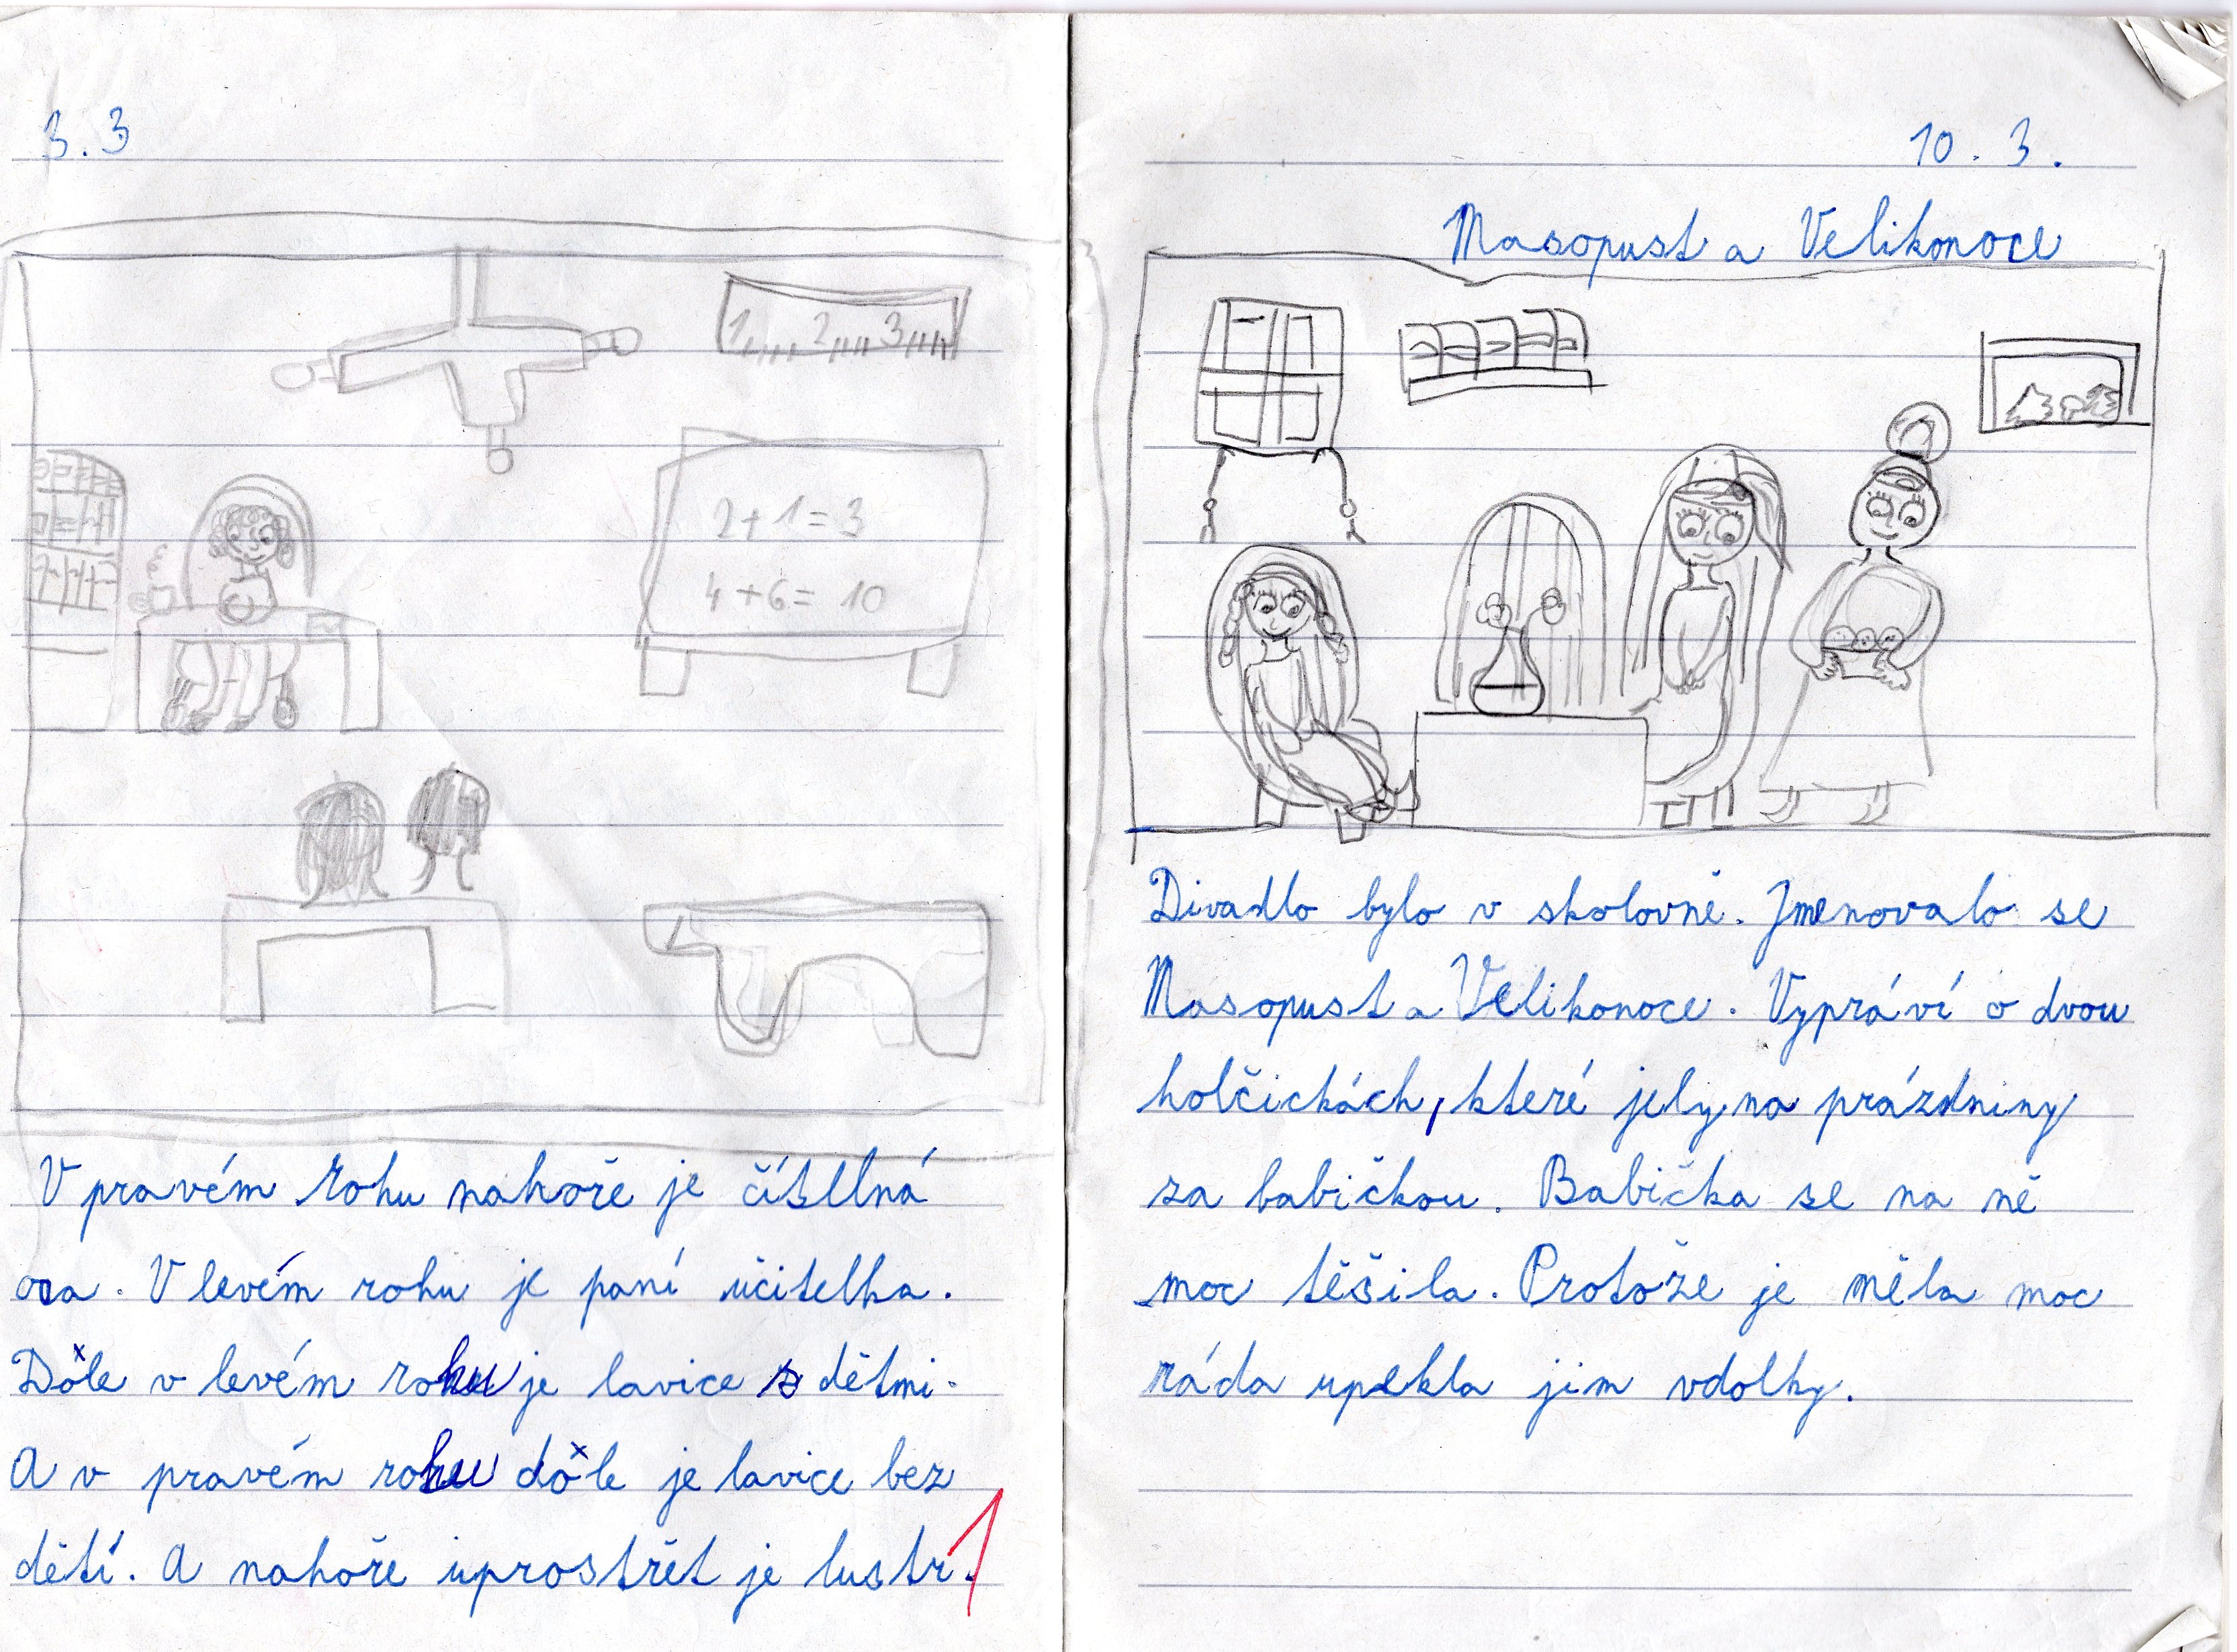 3. 3
1 2 3
2+1=3
4+6=10
V pravém rohu nahoře je číselná
osa. V levém rohu je paní učitelka.
Dole v levém rohu je lavice s dětmi.
A v pravém rohu dole je lavice bez
dětí. A nahoře uprostřet je lustr.
1
10. 3.
Masopust a Velikonoce
Divadlo bylo v skolovně. Jmenovalo se
Masopust a Velikonoce. Vypráví o dvou
holčičkách, které jely na prázdniny
za babičkou. Babička se na ně
moc těšila. Protože je měla moc
ráda upekla jim vdolky.